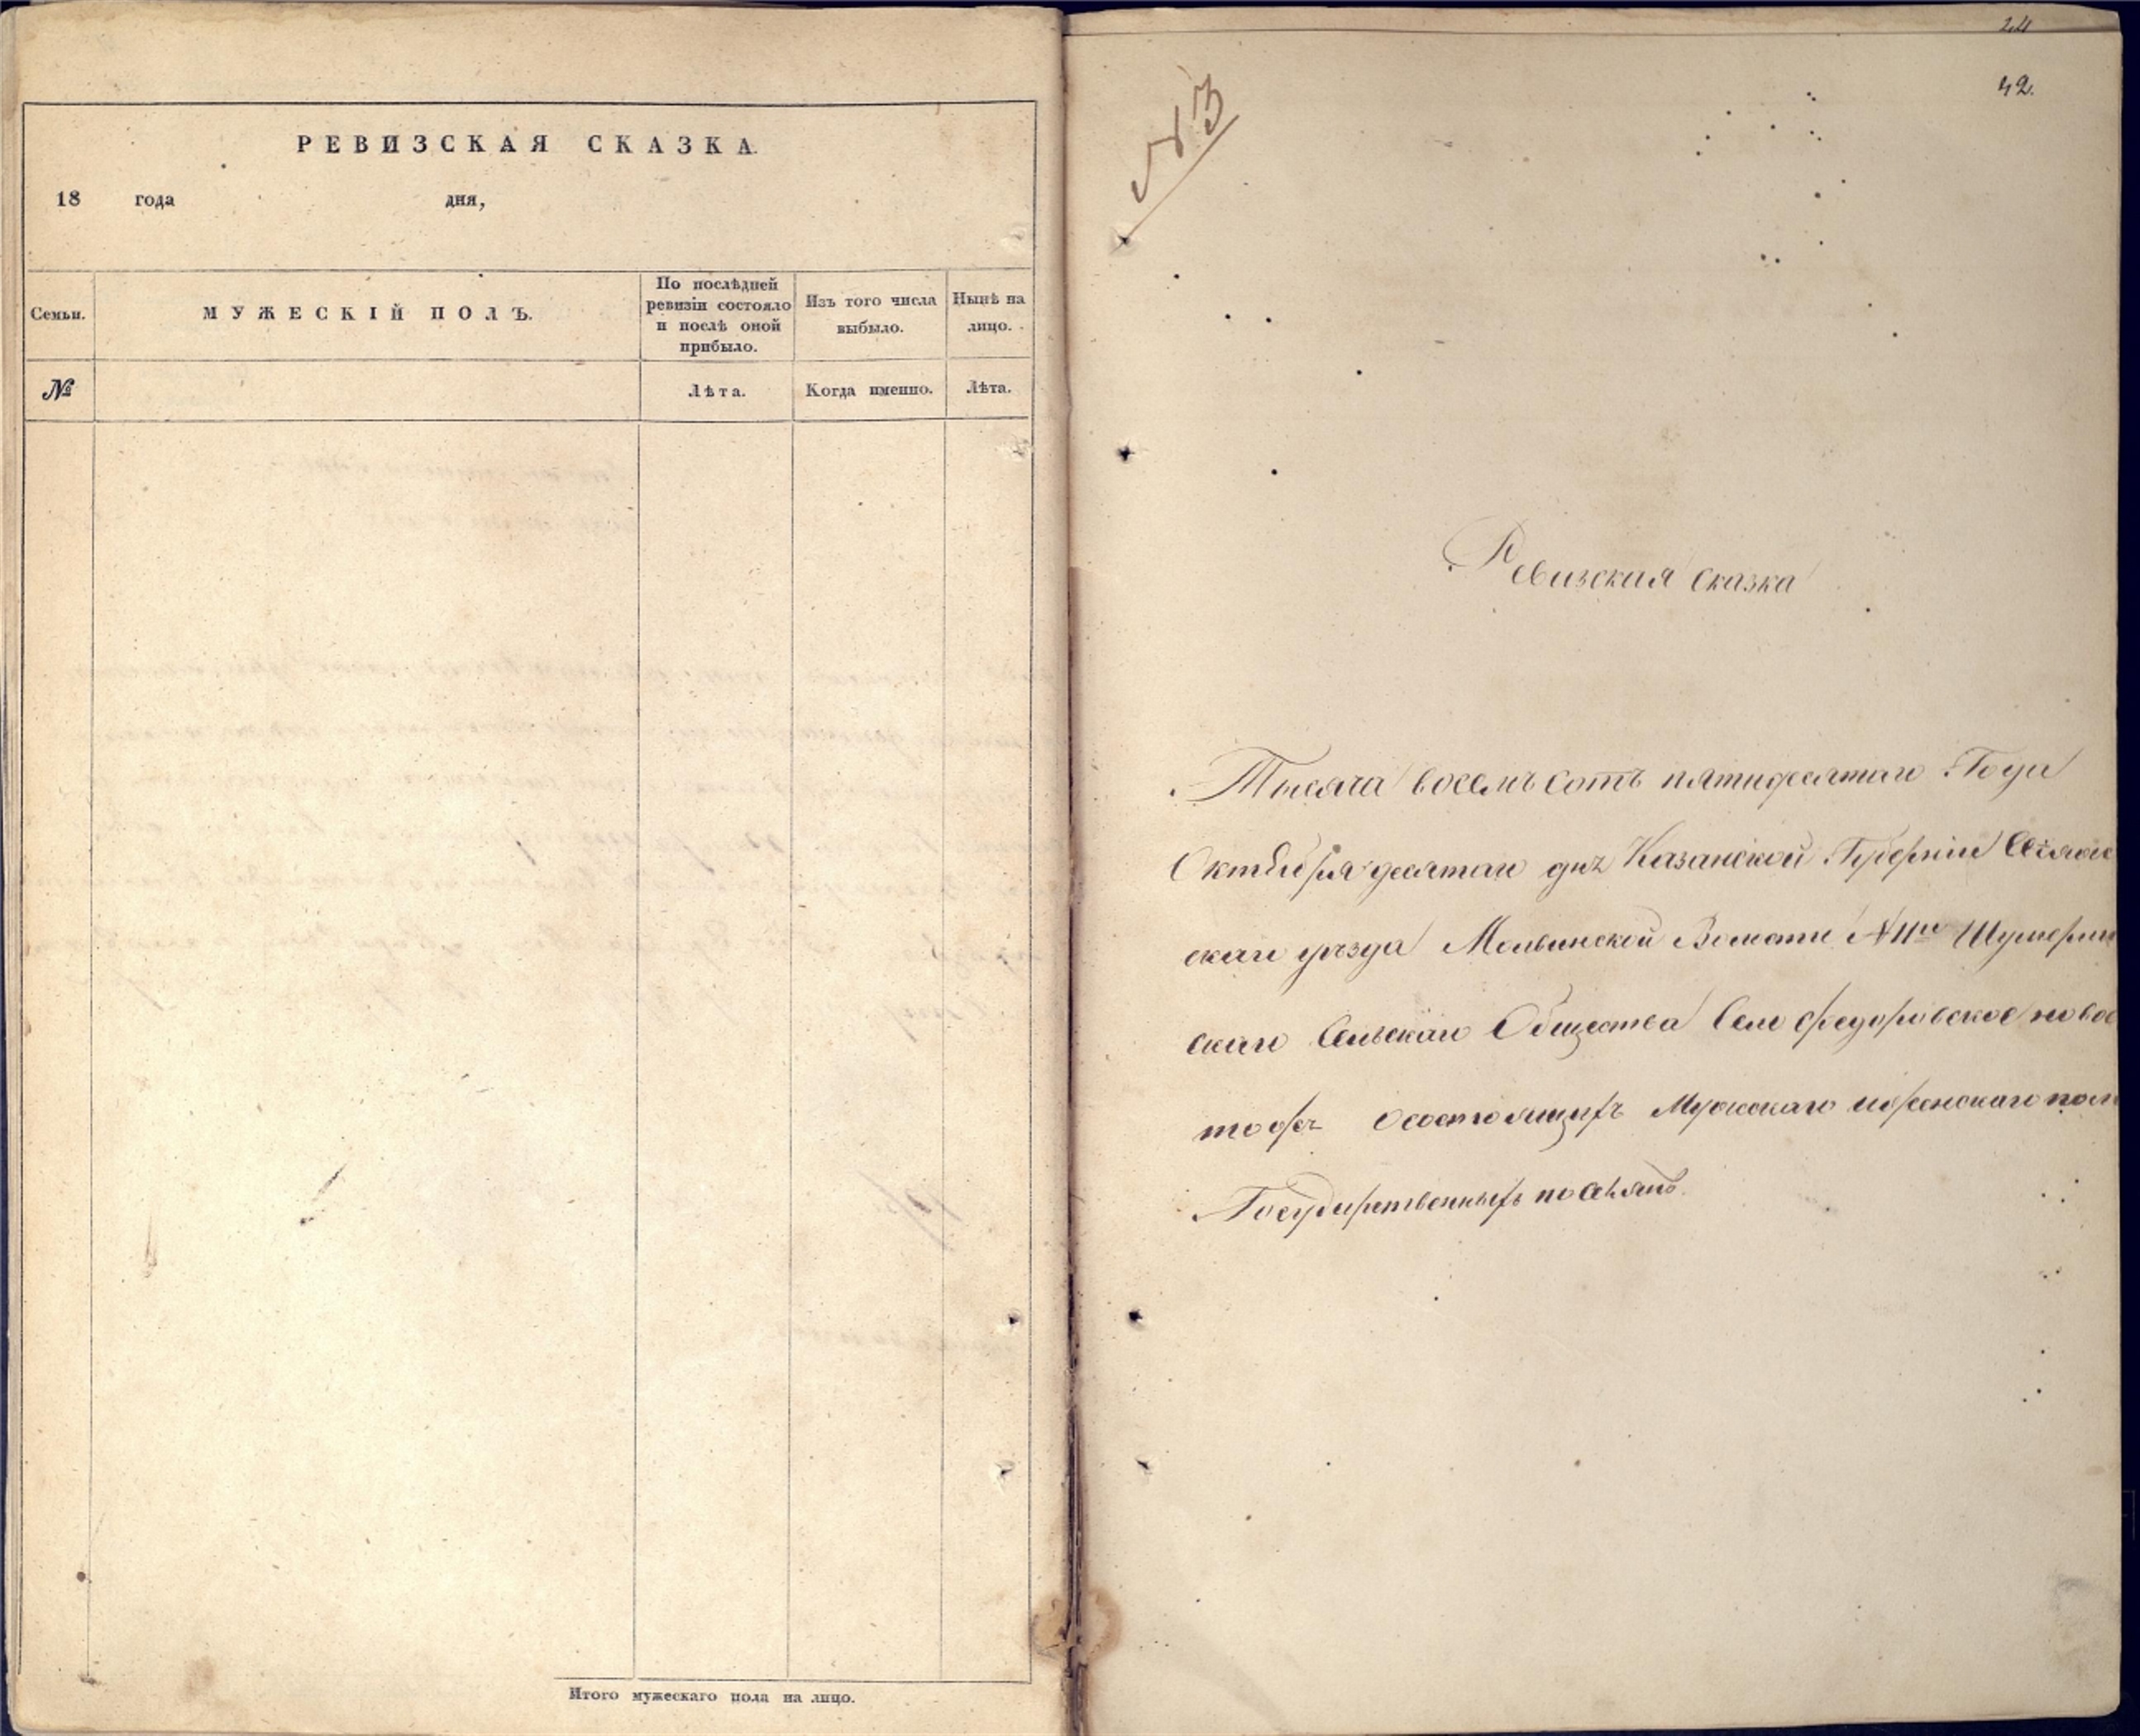 РЕВИЗСКАЯ СКАЗКА.
18 года дня,
Семьи.
МУЖЕСКІЙ ПОЛЪ.
По послѣдней
ревизіи состояло
и послѣ оной
прибыло.
Изъ того числа
выбыло.
Нынѣ на
лицо.
№
Лѣта.
Когда именно.
Лѣта.
Итого мужескаго пола на лицо.
24
42.
№ 3
Ревизская сказка
Тысяча восемь сотъ пятидесятаго Года
Октября десятаго дня Казанской Губерніи Свіяж
скаго уѣзда Молвинской Волости N11го Шумерин
скаго Сельскаго Общества Село Федоровское
тожъ Осостоящихъ Мужскаго иженскаго пола
Государственныхъ поселянъ.